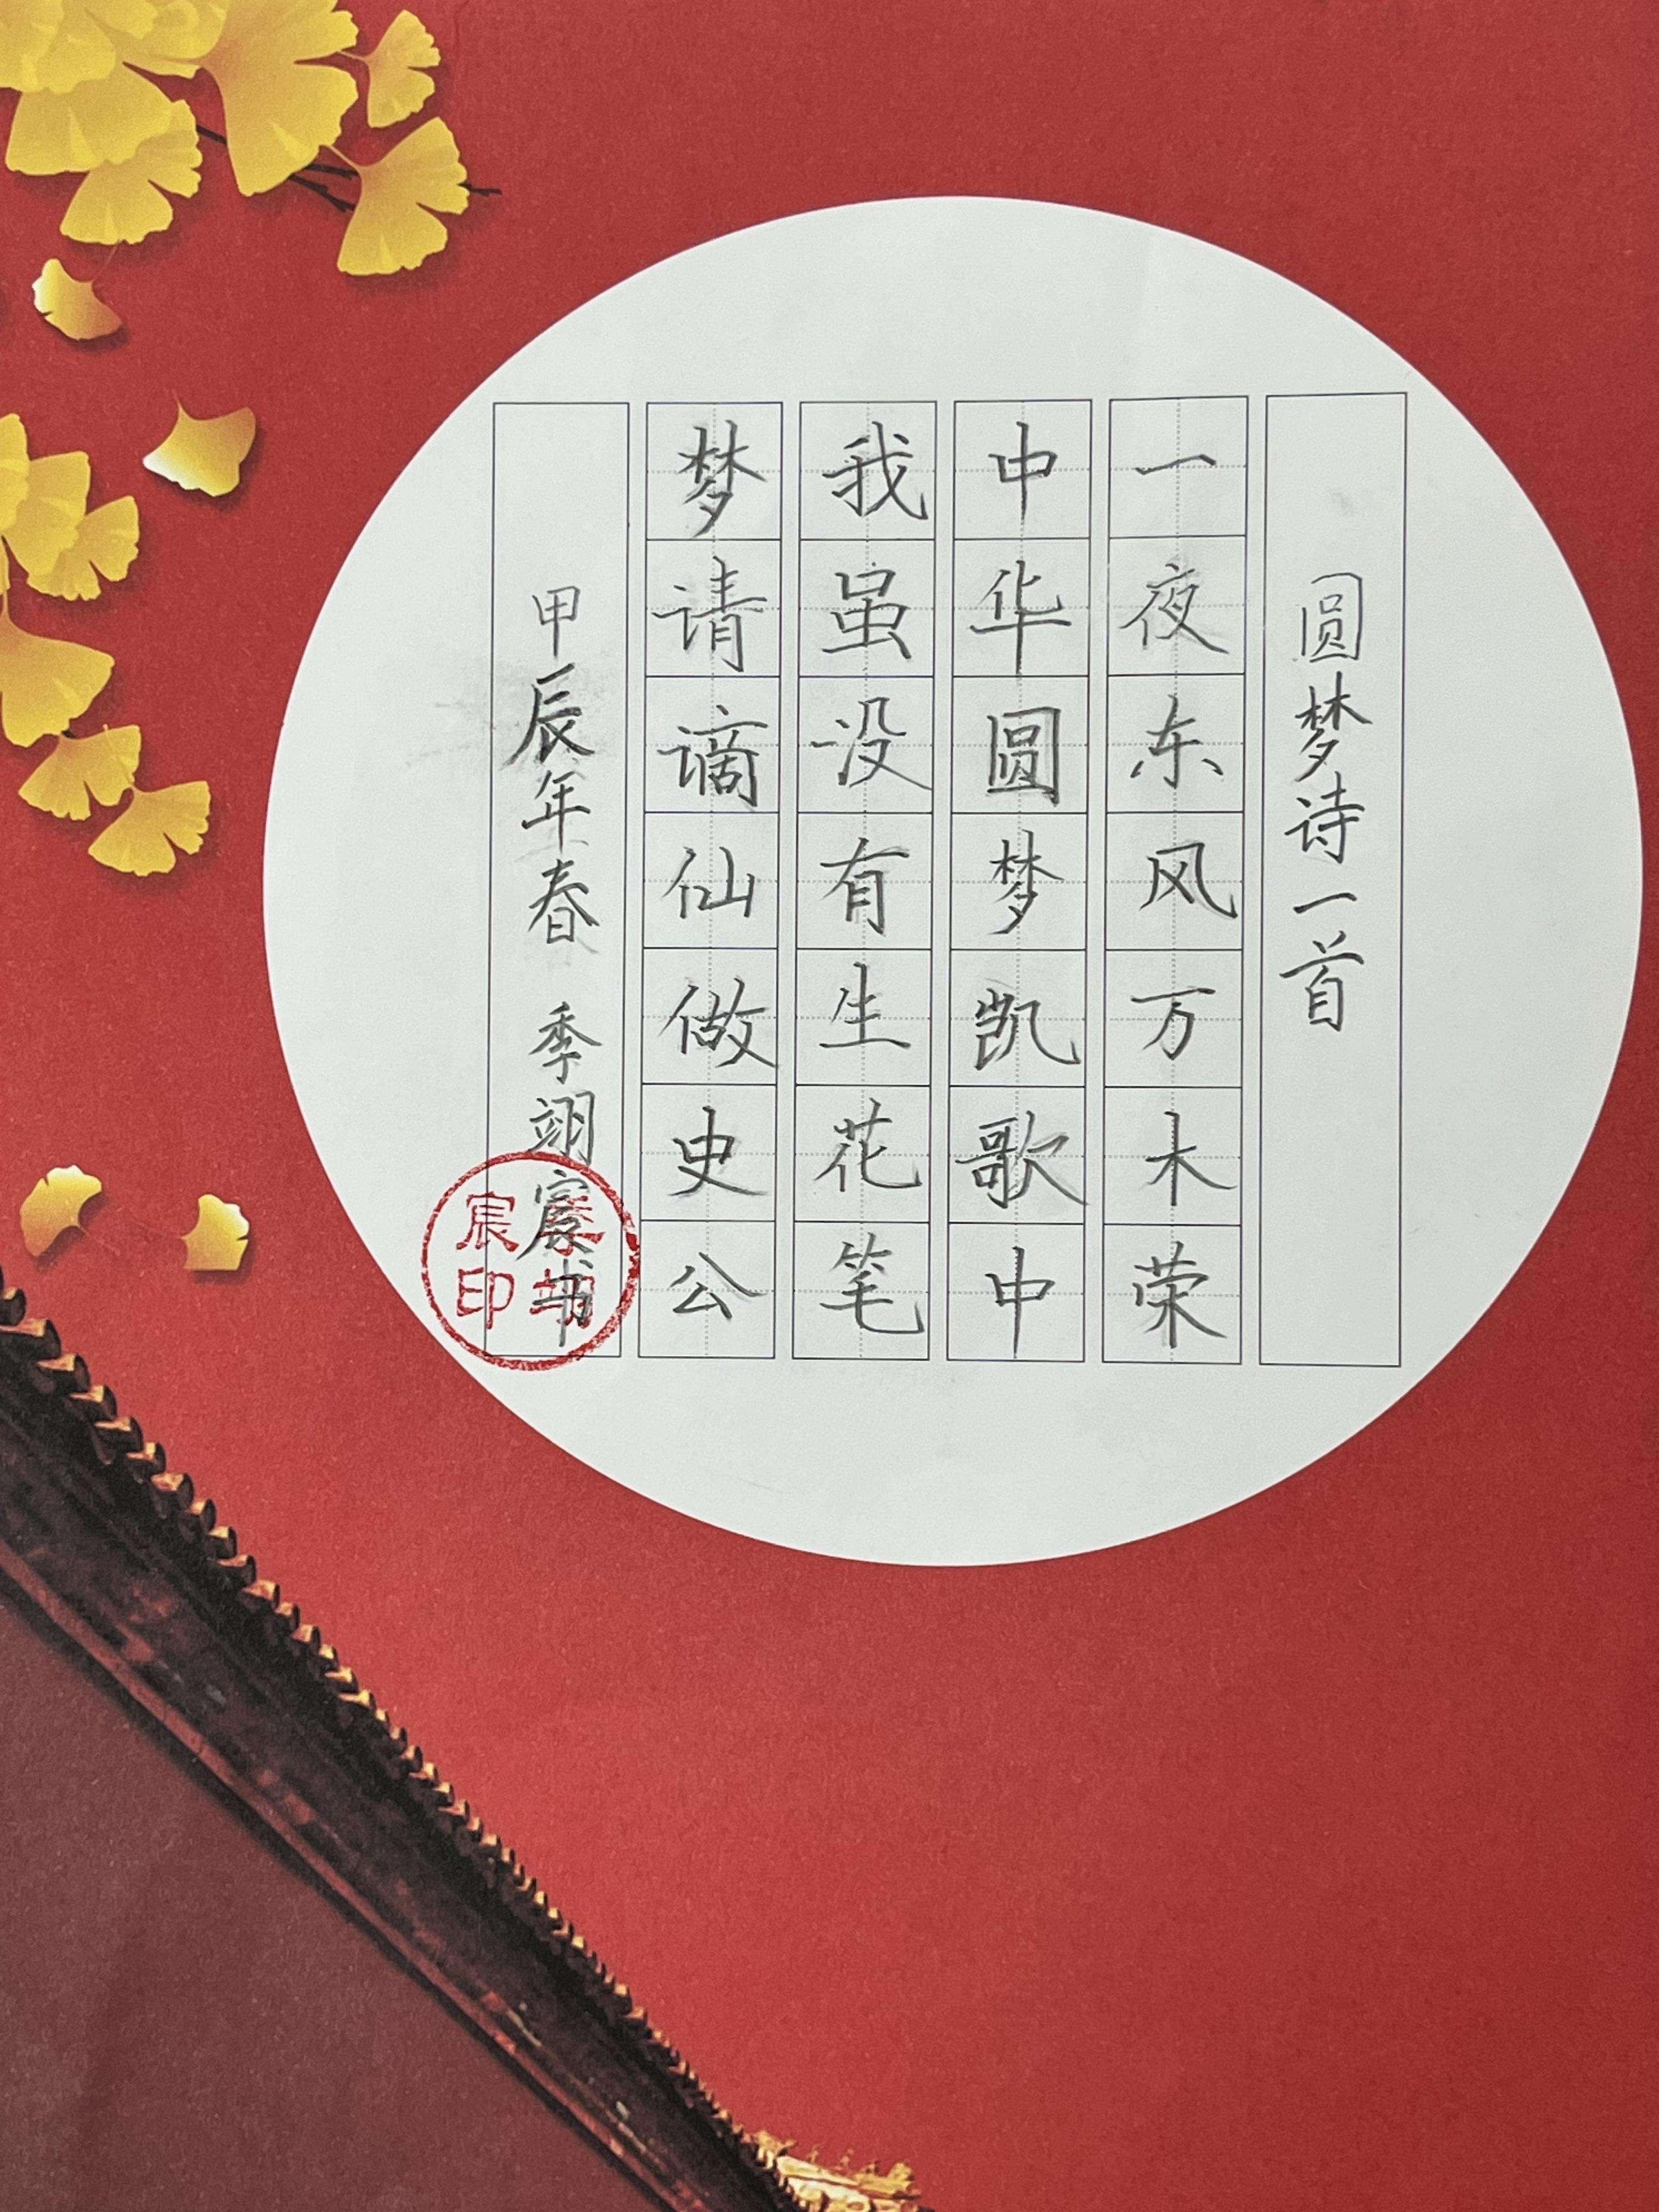 圆梦诗一首
一夜东风万木荣
中华圆梦凯歌中
我虽没有生花笔
梦请谪仙做史公
甲辰年春 季翊宸书
宸印